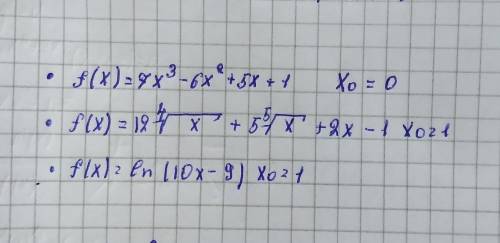 • f(x) = 7x³ - 6x² + 5x + 1 x₀ = 0
• f(x) = 12 ∜x + 5 ⁵√x + 2x - 1 x₀ = 1
• f(x) = ln (10x - 9) x₀ = 1